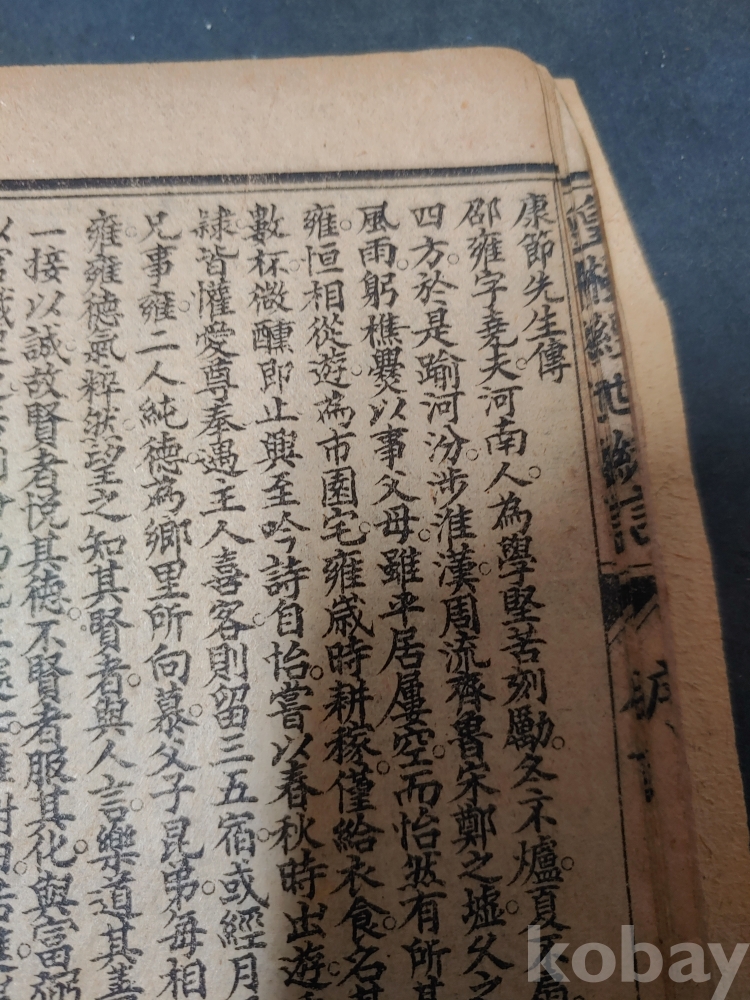 康節先生傳
邵雍字堯夫河南人為學堅苦刻勵冬不爐夏不扇
四方於是踰河汾涉淮漢周流齊魯宋鄭之墟久之
風雨躬樵爨以事父母雖平居屢空而怡然有所甚
雍恒相從遊為市園宅雍歲時耕稼僅給衣食名其
數杯微醺即止興至吟詩自怡嘗以春秋時出遊
隸皆懽愛尊奉遇主人喜客則留三五宿或經月
兄事雍二人純德為鄉里所向慕父子昆弟每相
雍雍德氣粹然望之知其賢者與人言樂道其善
一接以誠故賢者悅其德不賢者服其化與富弼
皇極經世緒言
kobay